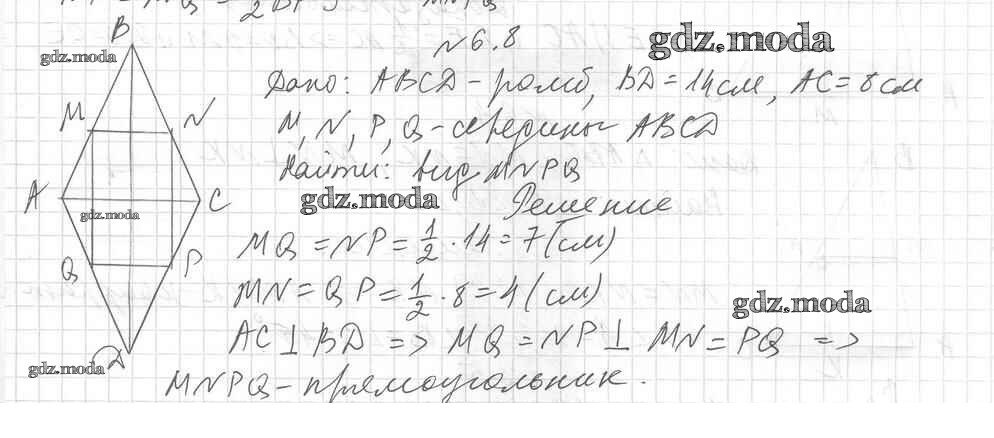 № 6.8
gdz.moda
Дано: ABCD - ромб, BD = 14 см, AC = 8 см
M, N, P, Q - середины ABCD
Найти: вид MNPQ
gdz.moda
Решение
MQ = NP = 1/2 · 14 = 7 (см)
MN = QP = 1/2 · 8 = 4 (см)
gdz.moda
AC ⊥ BD => MQ = NP ⊥ MN = PQ =>
MNPQ - прямоугольник.
B
gdz.moda
M N
A C
gdz.moda
Q P
gdz.moda